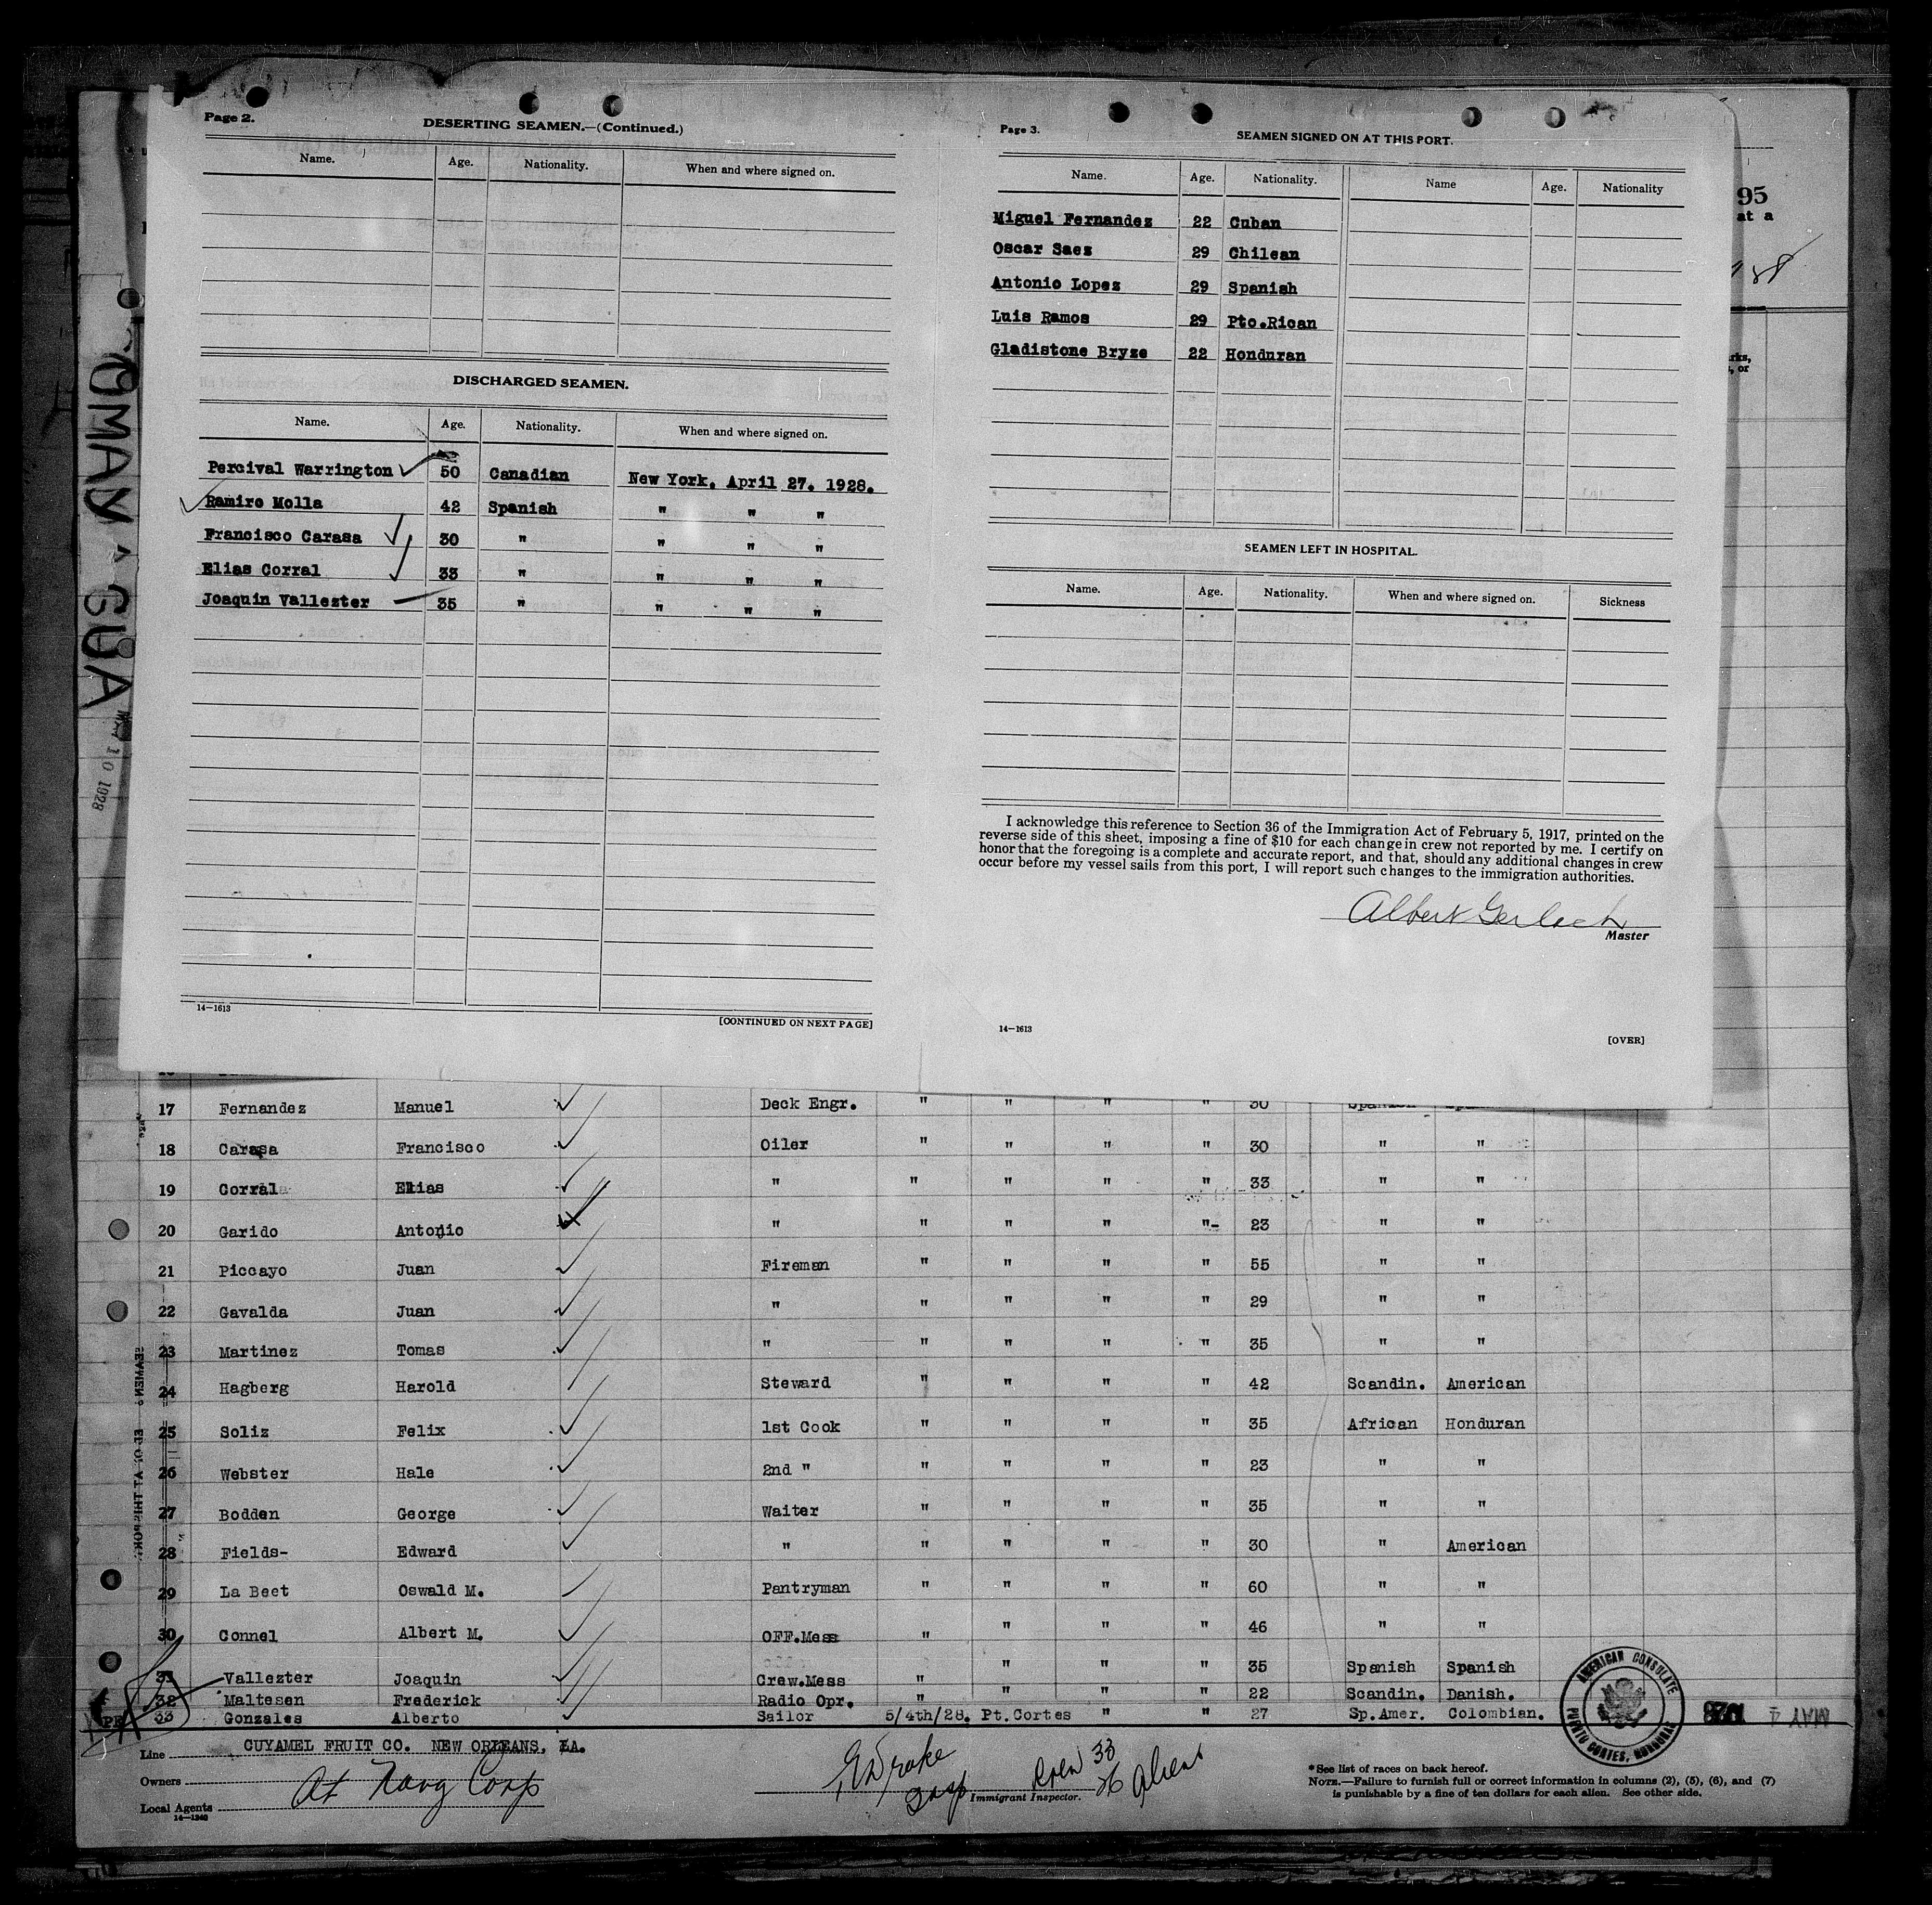 Page 2.
DESERTING SEAMEN.—(Continued.)
Name. Age. Nationality. When and where signed on.
DISCHARGED SEAMEN.
Name. Age. Nationality. When and where signed on.
Percival Warrington 50 Canadian New York. April 27. 1928.
Ramiro Molla 42 Spanish " " "
Francisco Carasa 30 " " " "
Elias Corral 33 " " " "
Joaquin Vallezter 35 " " " "
14—1613
[CONTINUED ON NEXT PAGE]
Page 3.
SEAMEN SIGNED ON AT THIS PORT.
Name. Age. Nationality. Name Age. Nationality
Miguel Fernandez 22 Cuban
Oscar Saez 29 Chilean
Antonio Lopez 29 Spanish
Luis Ramos 29 Pto.Rican
Gladistone Bryze 22 Honduran
SEAMEN LEFT IN HOSPITAL.
Name. Age. Nationality. When and where signed on. Sickness
I acknowledge this reference to Section 36 of the Immigration Act of February 5, 1917, printed on the
reverse side of this sheet, imposing a fine of $10 for each change in crew not reported by me. I certify on
honor that the foregoing is a complete and accurate report, and that, should any additional changes in crew
occur before my vessel sails from this port, I will report such changes to the immigration authorities.
Albert Gerlach
Master
14—1613
[OVER]
95
at a
rks,
, or
OMAY
GUA
MAY 10 1928
17 Fernandez Manuel Deck Engr. " " " " 30 Spanish
18 Carasa Francisco Oiler " " " " 30 " "
19 Corral Elias " " " " " 33 " "
20 Garido Antonio " " " " "- 23 " "
21 Piccayo Juan Fireman " " " " 55 " "
22 Gavalda Juan " " " " " 29 " "
23 Martinez Tomas " " " " " 35 " "
24 Hagberg Harold Steward " " " " 42 Scandin. American
25 Soliz Felix 1st Cook " " " " 35 African Honduran
26 Webster Hale 2nd " " " " " 23 " "
27 Bodden George Waiter " " " " 35 " "
28 Fields- Edward " " " " " 30 " American
29 La Beet Oswald M. Pantryman " " " " 60 " "
30 Connel Albert M. OFF.Mess " " " " 46 " "
31 Vallezter Joaquin Crew.Mess " " " " 35 Spanish Spanish
32 Maltesen Frederick Radio Opr. " " " " 22 Scandin. Danish.
33 Gonzales Alberto Sailor 5/4th/28. Pt.Cortes " " 27 Sp.Amer. Colombian.
AMERICAN CONSULATE
PUERTO CORTES, HONDURAS
MAY 4 1928
Line CUYAMEL FRUIT CO. NEW ORLEANS, LA.
Owners
Local Agents At Navg Corp
14—1240
Drake
Insp Immigrant Inspector.
Crew 33
26 Aliens
*See list of races on back hereof.
NOTE.—Failure to furnish full or correct information in columns (2), (5), (6), and (7)
is punishable by a fine of ten dollars for each alien. See other side.